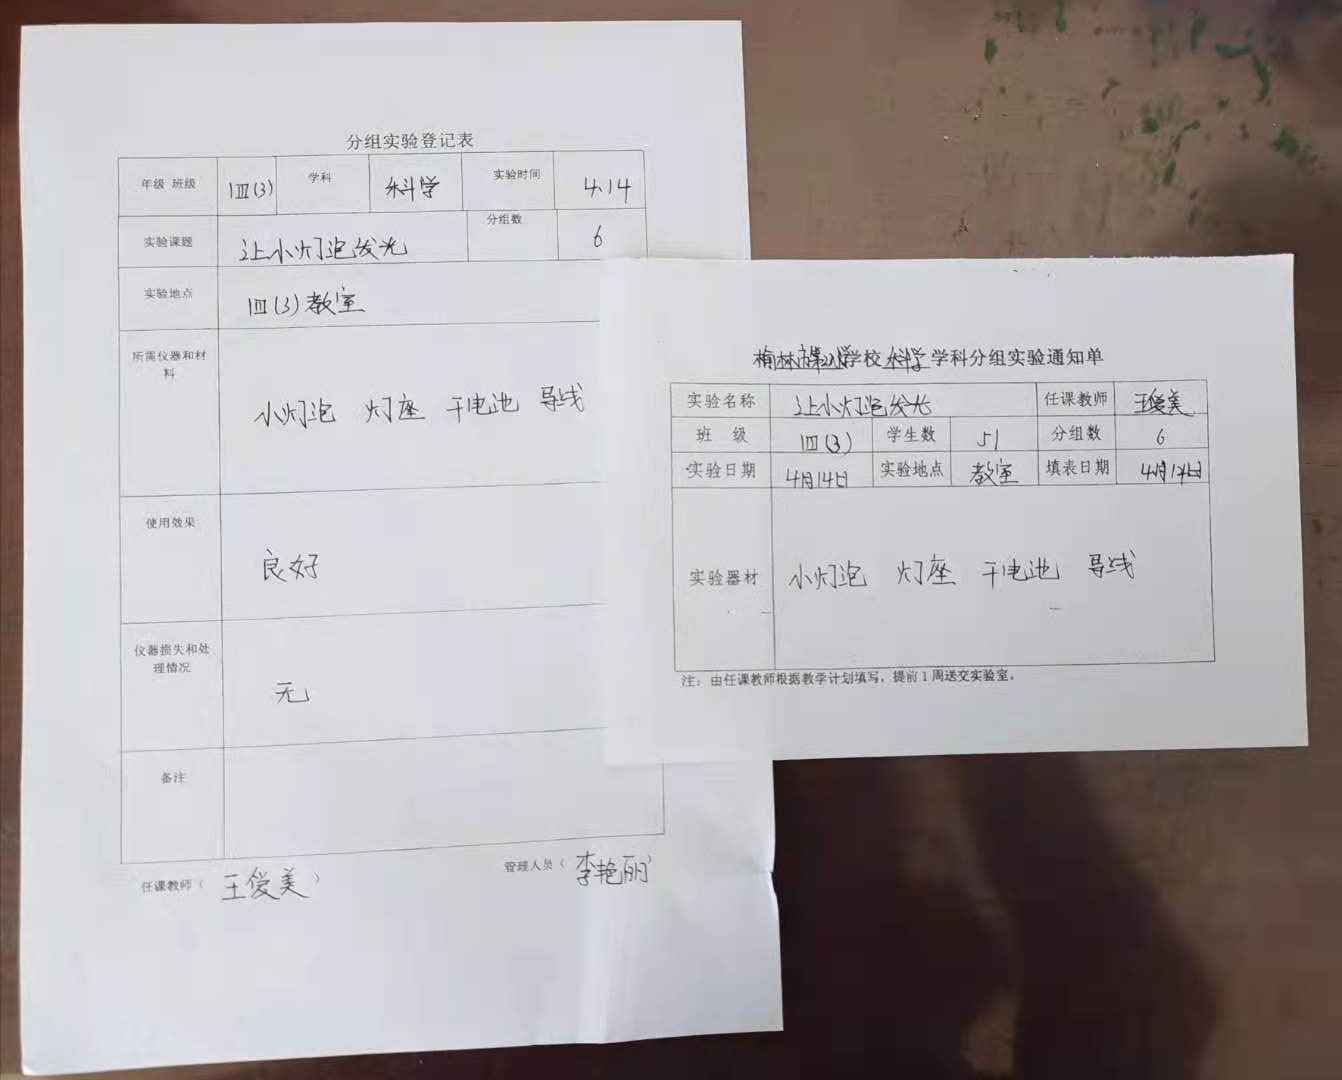 分组实验登记表
年级 班级 四(3) 学科 科学 实验时间 4.14
实验课题 让小灯泡发光 分组数 6
实验地点 四(3)教室
所需仪器和材
料
小灯泡 灯座 干电池 导线
使用效果 良好
仪器损失和处
理情况
无
备注
任课教师( 王俊美 )
管理人员( 李艳丽 )
学校 科学 学科分组实验通知单
实验名称 让小灯泡发光 任课教师 王俊美
班 级 四(3) 学生数 51 分组数 6
实验日期 4月14日 实验地点 教室 填表日期 4月14日
实验器材 小灯泡 灯座 干电池 导线
注:由任课教师根据教学计划填写,提前1周送交实验室。